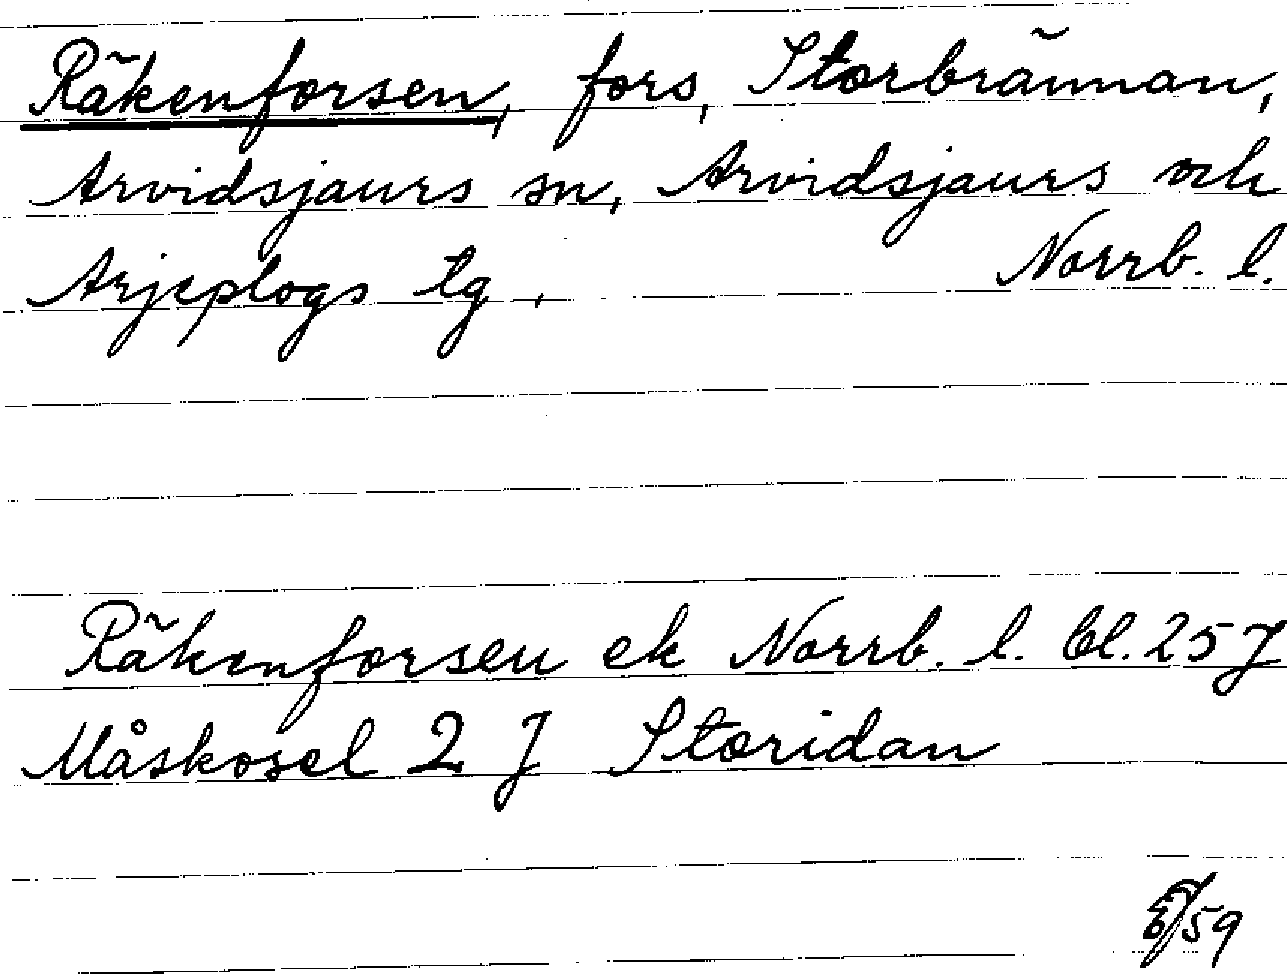 Räkenforsen, fors, Storbrännan,
Arvidsjaurs sn, Arvidsjaurs och
Arjeplogs tg, Norrb. l.
Räkenforsen ek Norrb. l. bl. 25 J
Måskosel 2 J Storidan
59